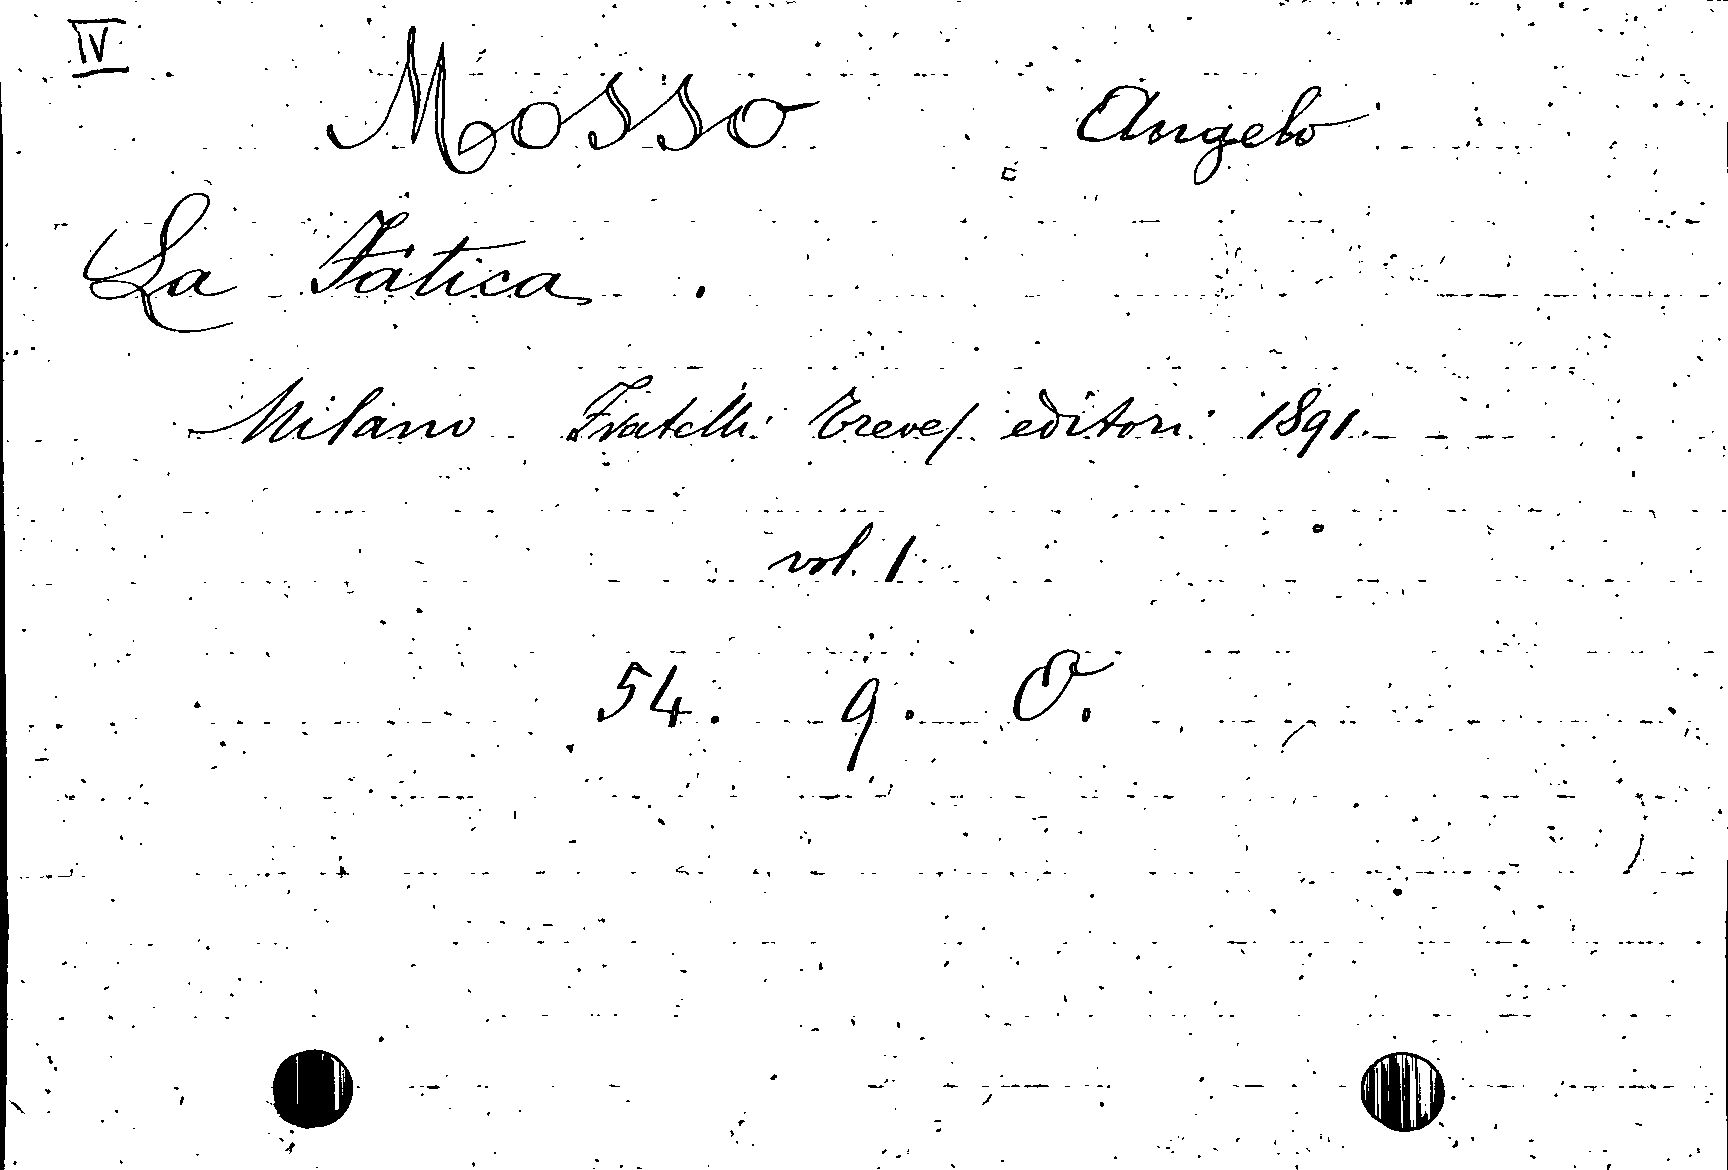 IV
Mosso Angelo
La Fatica.
Milano Fratelli Treves editori 1891.
vol. 1
54. 9. O.